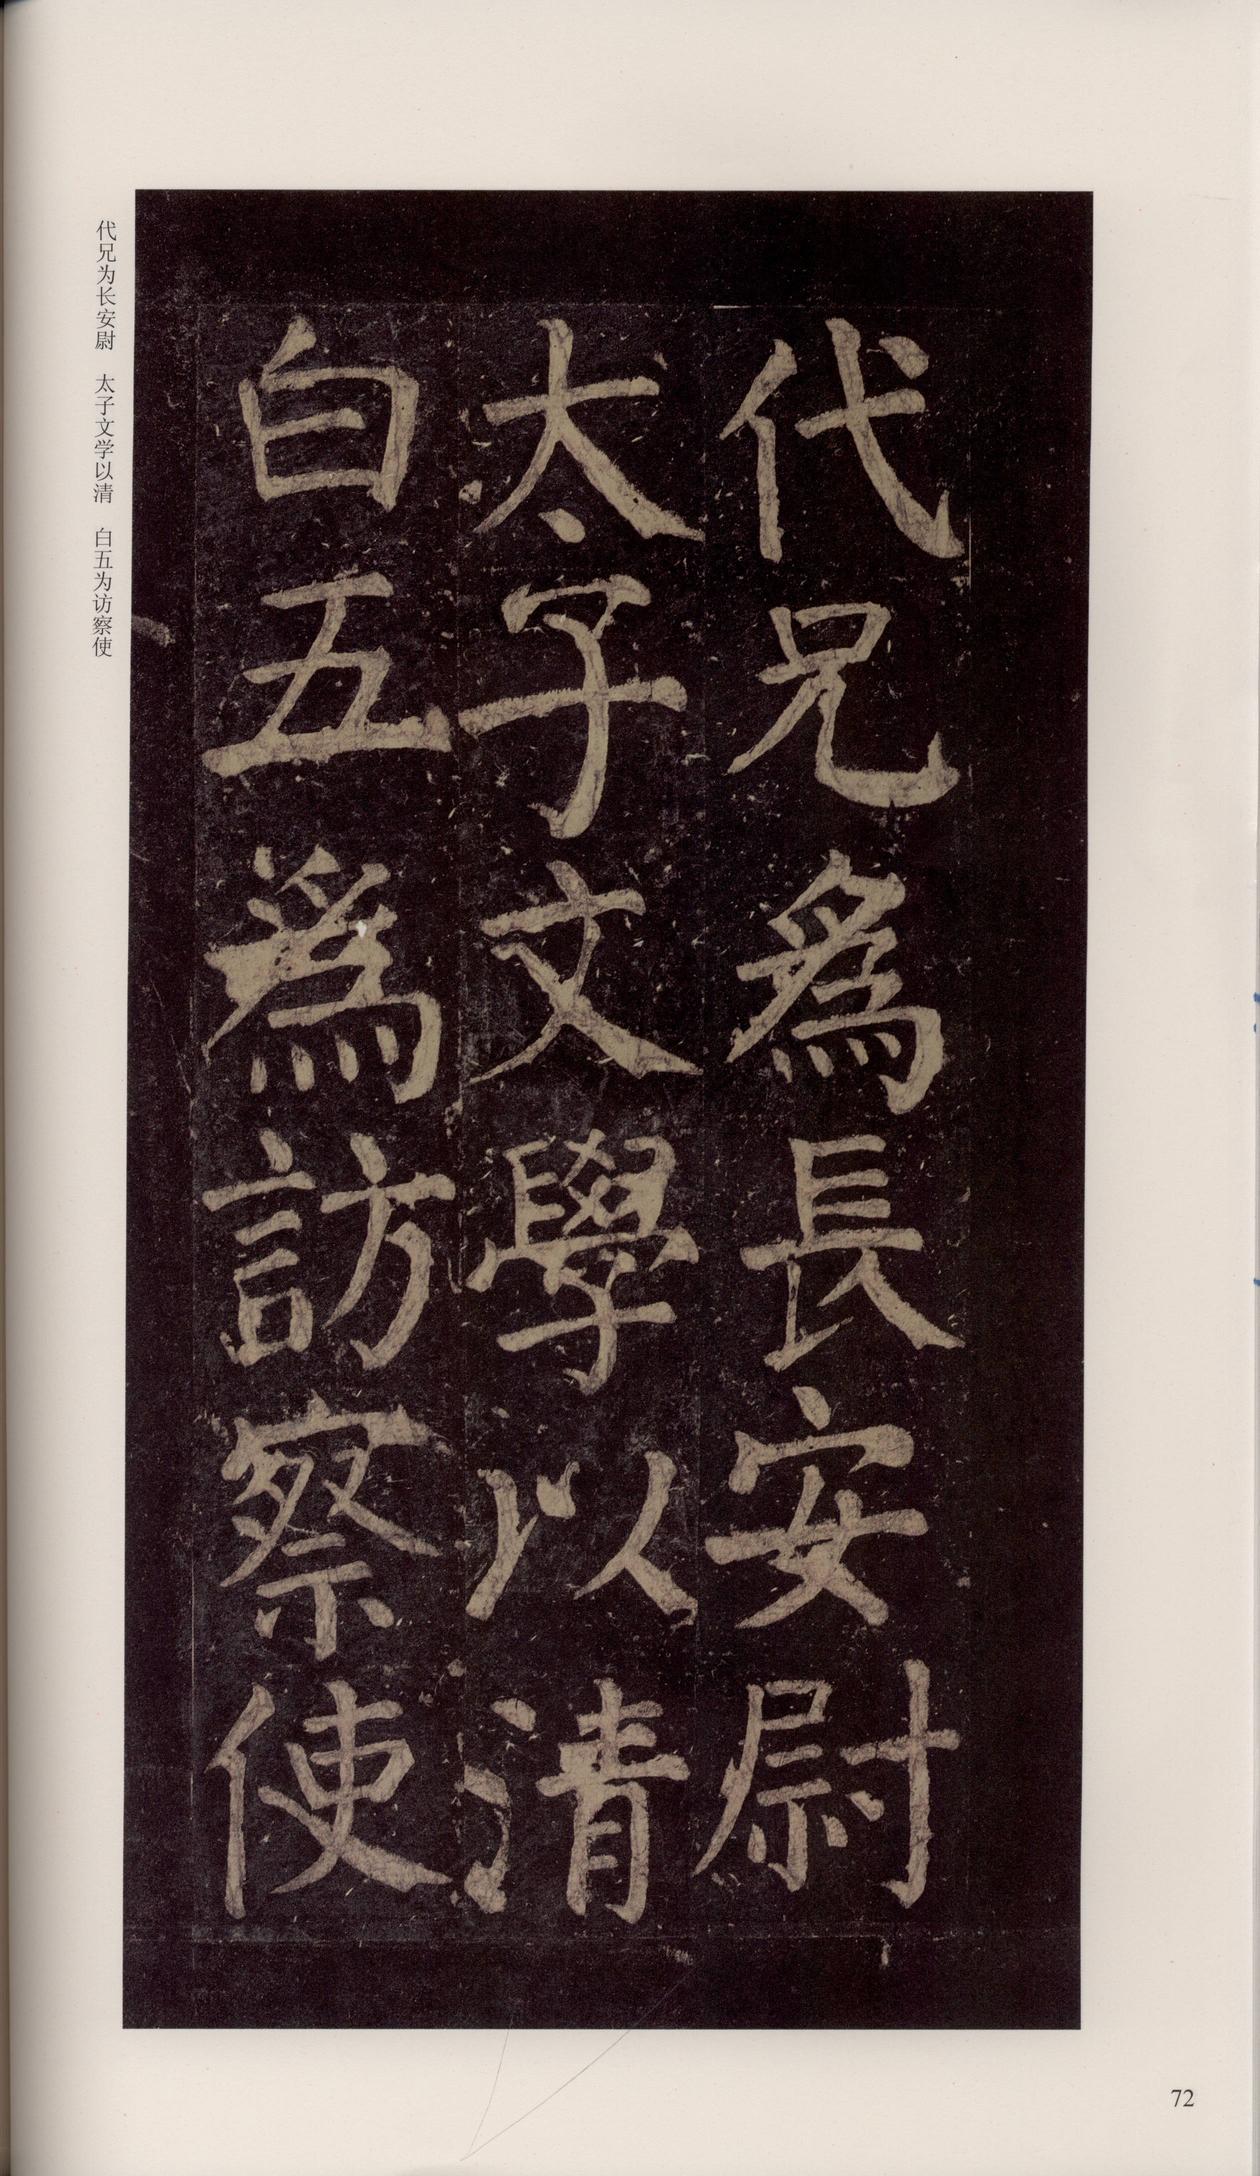 代兄為長安尉
太子文學以清
白五為訪察使
代兄为长安尉　太子文学以清　白五为访察使
72